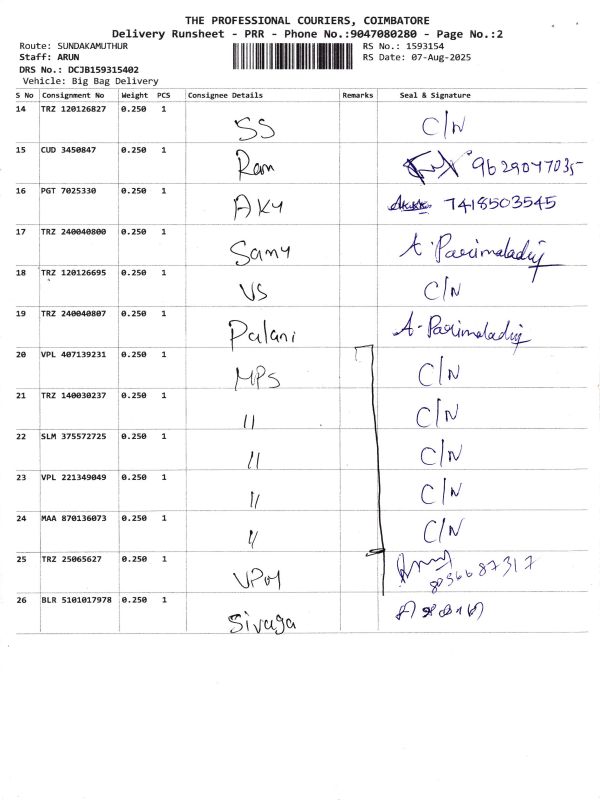 THE PROFESSIONAL COURIERS, COIMBATORE
Delivery Runsheet - PRR - Phone No.:9047080280 - Page No.:2
Route: SUNDAKAMUTHUR RS No.: 1593154
Staff: ARUN RS Date: 07-Aug-2025
DRS No.: DCJB159315402
Vehicle: Big Bag Delivery
S No Consignment No Weight PCS Consignee Details Remarks Seal & Signature
14 TRZ 120126827 0.250 1 SS C/N
15 CUD 3450847 0.250 1 Ram 9629077035
16 PGT 7025330 0.250 1 AKY 7418503545
17 TRZ 240040800 0.250 1 Samy A. Parimaladevi
18 TRZ 120126695 0.250 1 VS C/N
19 TRZ 240040807 0.250 1 Palani A. Parimaladevi
20 VPL 407139231 0.250 1 MPS C/N
21 TRZ 140030237 0.250 1 11 C/N
22 SLM 375572725 0.250 1 11 C/N
23 VPL 221349049 0.250 1 11 C/N
24 MAA 870136073 0.250 1 11 C/N
25 TRZ 25065627 0.250 1
26 BLR 5101017978 0.250 1 Sivaga